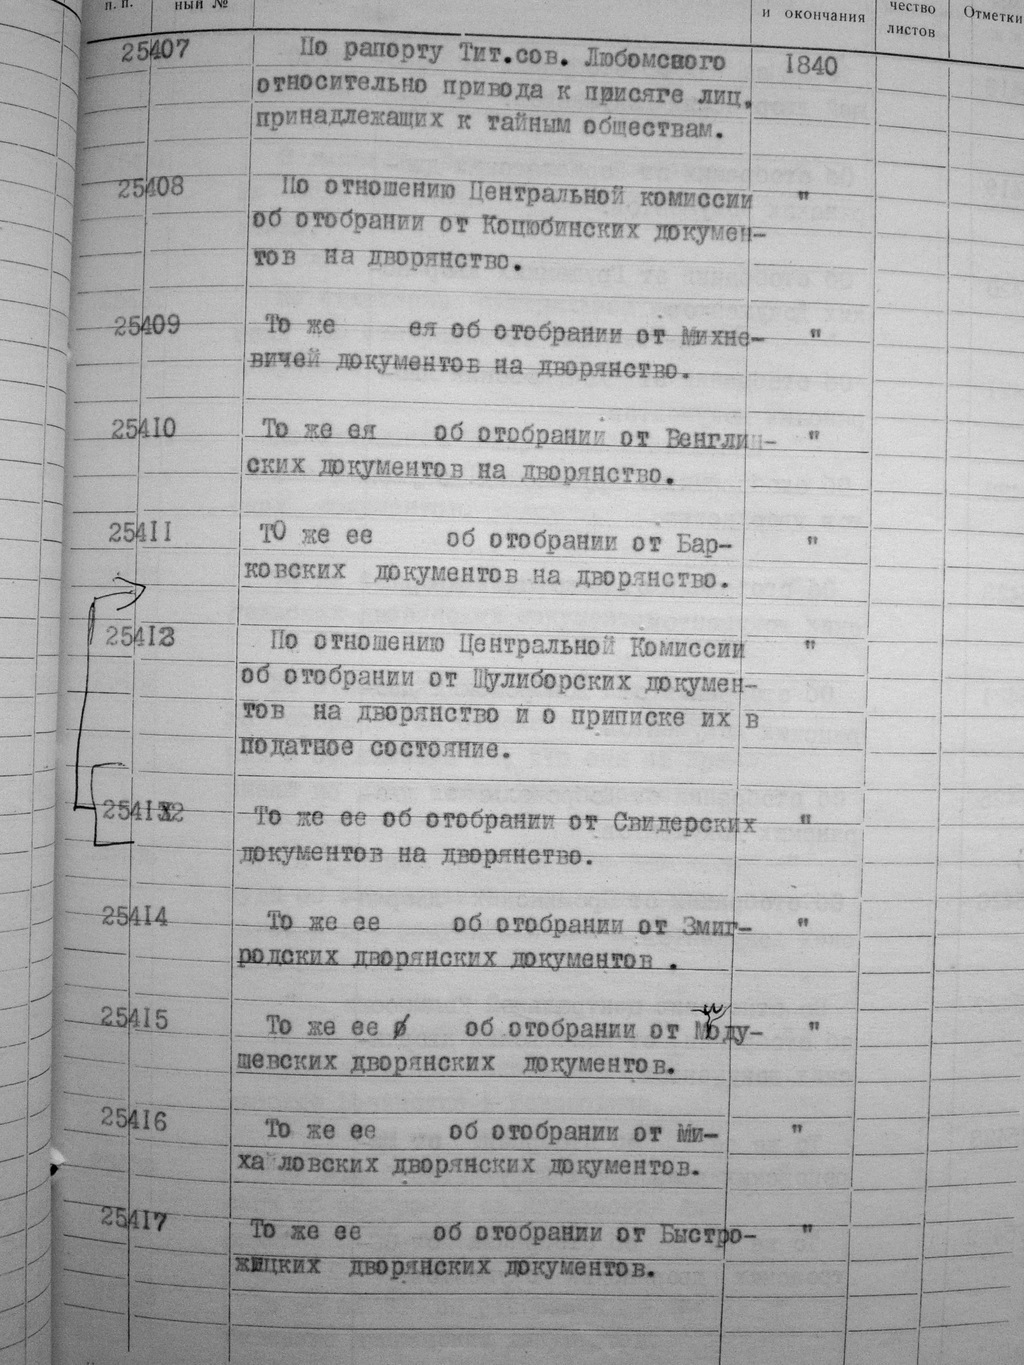 п. п. ный № и окончания чество листов Отметки
25407 По рапорту Тит.сов. Любомского 1840
относительно привода к присяге лиц,
принадлежащих к тайным обществам.
25408 По отношению Центральной комиссии "
об отобрании от Коцюбинских докумен-
тов на дворянство.
25409 То же ея об отобрании от Михне- "
вичей документов на дворянство.
25410 То же ея об отобрании от Венглин- "
ских документов на дворянство.
25411 ТО же ее об отобрании от Бар- "
ковских документов на дворянство.
25413 По отношению Центральной Комиссии "
об отобрании от Шулиборских докумен-
тов на дворянство и о приписке их в
податное состояние.
25412 То же ее об отобрании от Свидерских "
документов на дворянство.
25414 То же ее об отобрании от Змиг- "
родских дворянских документов .
25415 То же ее об отобрании от Моду- "
шевских дворянских документов.
25416 То же ее об отобрании от Ми- "
ха ловских дворянских документов.
25417 То же ее об отобрании от Быстро- "
жицких дворянских документов.